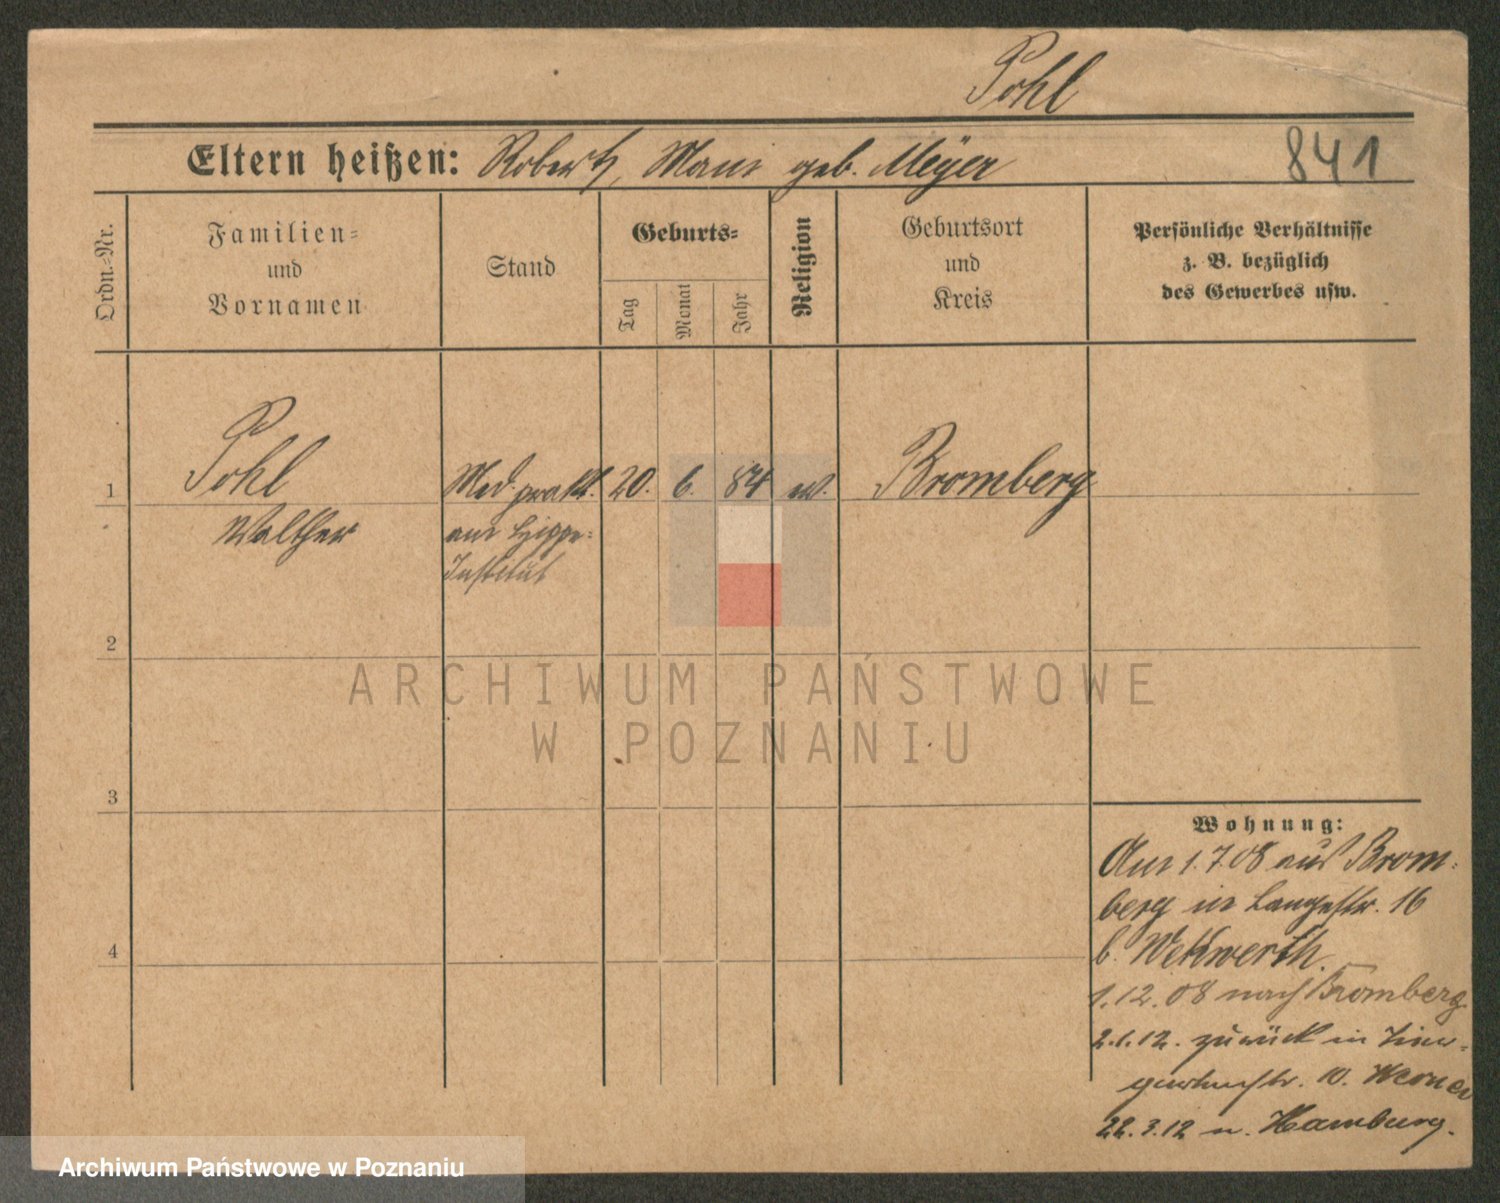 Pohl
Eltern heißen: Robert, Marie geb. Meÿer
841
Ordn.-Nr.
Familien-
und
Vornamen
Stand
Geburts-
Tag
Monat
Jahr
Religion
Geburtsort
und
Kreis
Persönliche Verhältnisse
z. B. bezüglich
des Gewerbes usw.
1
Pohl
Med. prakt.
20.
6.
84
ev.
Bromberg
Walther
am Hyg.
Institut
2
3
4
ARCHIWUM PAŃSTWOWE
W POZNANIU
Wohnung:
Am 1.7.08 aus Brom-
berg in Langestr. 16
b. Wekwerth.
1.12.08 nach Bromberg
2.1.12. zurück in
10. Werner
22.3.12 n. Hamburg.
Archiwum Państwowe w Poznaniu